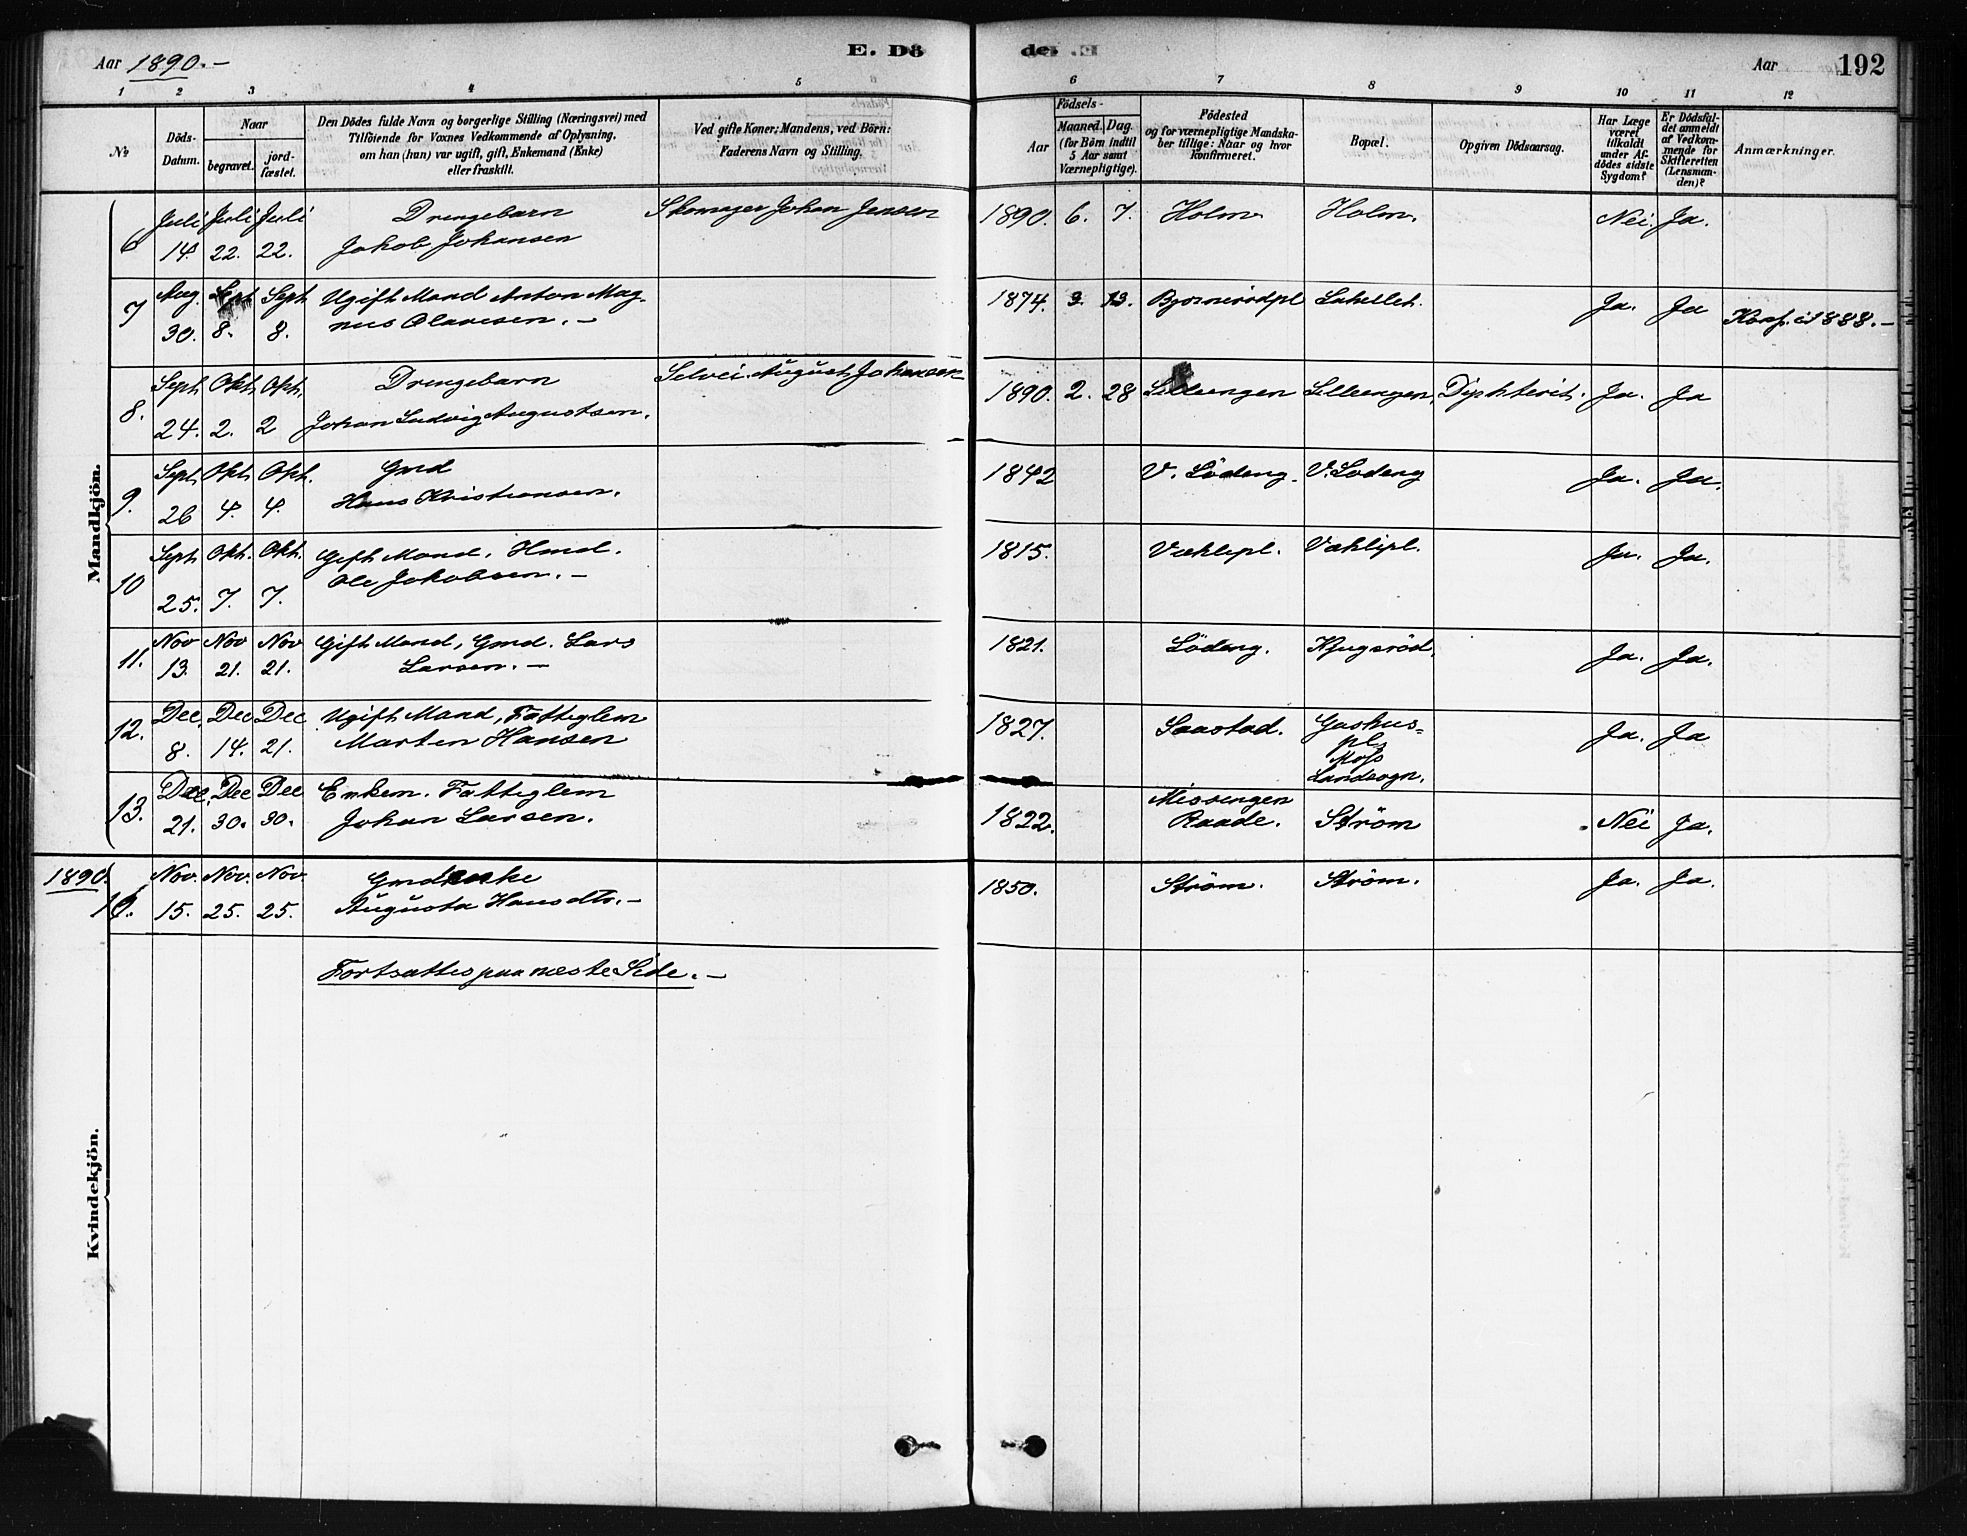 Aar 1890. –
E. Dö
de. E
Aar 192
1 2 3 4 5 6 7 8 9 10 11 12
No
Döds-
Datum.
Naar
begravet.
jord-
fæstet.
Den Dödes fulde Navn og borgerlige Stilling (Næringsvei) med
Tilföiende for Voxnes Vedkommende af Oplysning,
om han (hun) var ugift, gift, Enkemand (Enke)
eller fraskilt.
Ved gifte Koner: Mandens, ved Börn:
Faderens Navn og Stilling.
Födsels-
Aar
Maaned. Dag.
(for Börn indtil
5 Aar samt
Værnepligtige).
Födested
og for værnepligtige Mandska-
ber tillige: Naar og hvor
konfirmeret.
Bopæl.
Opgiven Dödsaarsag.
Har Læge
været
tilkaldt
under Af-
dödes sidste
Sygdom?
Er Dödsfal-
det anmeldt
af Vedkom-
mende for
Skifteretten
(Lensman-
den)?
Anmærkninger.
Mandkjön.
6 Juli Juli Juli Drengebarn Skomager Johan Jensen 1890. 6. 7. Holm Holm. Nei. Ja.
14. 22. 22. Jakob Johansen
7 Aug. Sept Sept Ugift Mand Anton Mag- 1874. 3. 13. Ja. Ja
30. 8. 8. nus Olavesen. – Konf. i 1888. –
8. Sept Okt. Okt. Drengebarn Selvei. August Johansen 1890. 2. 28 Lilleengen Lilleengen. Diphterit. Ja. Ja
24. 2. 2 Johan Ludvig Augustsen.
9. Sept Okt. Okt. Gmd 1842 V. Lödeng. V. Lodeng Ja. Ja.
26 4. 4. Hans Kristiansen.
10 Sept Okt. Okt. Gift Mand. Husd. 1815. Ja. Ja.
25. 7. 7. Ole Jakobsen. –
11. Nov Nov Nov Gift Mand, Gmd. Lars 1821. Lödeng. Ja. Ja.
13. 21. 21. Larsen. –
12. Dec. Dec Dec Ugift Mand, Fattiglem 1827. Saastad. Ja. Ja
8. 14. 21. Marten Hansen pl.
Moss
Landsogn.
13. Dec. Dec Dec Enkem. Fattiglem 1822. Missingen
21. 30. 30. Johan Larsen. Raade. Ström Nei Ja.
1890. Nov. Nov. Nov. 1850. Ström. Ström. Ja. Ja.
15. 25. 25. Augusta Hansdtr. –
Fortsættes paa næste Side. –
Kvindekjön.